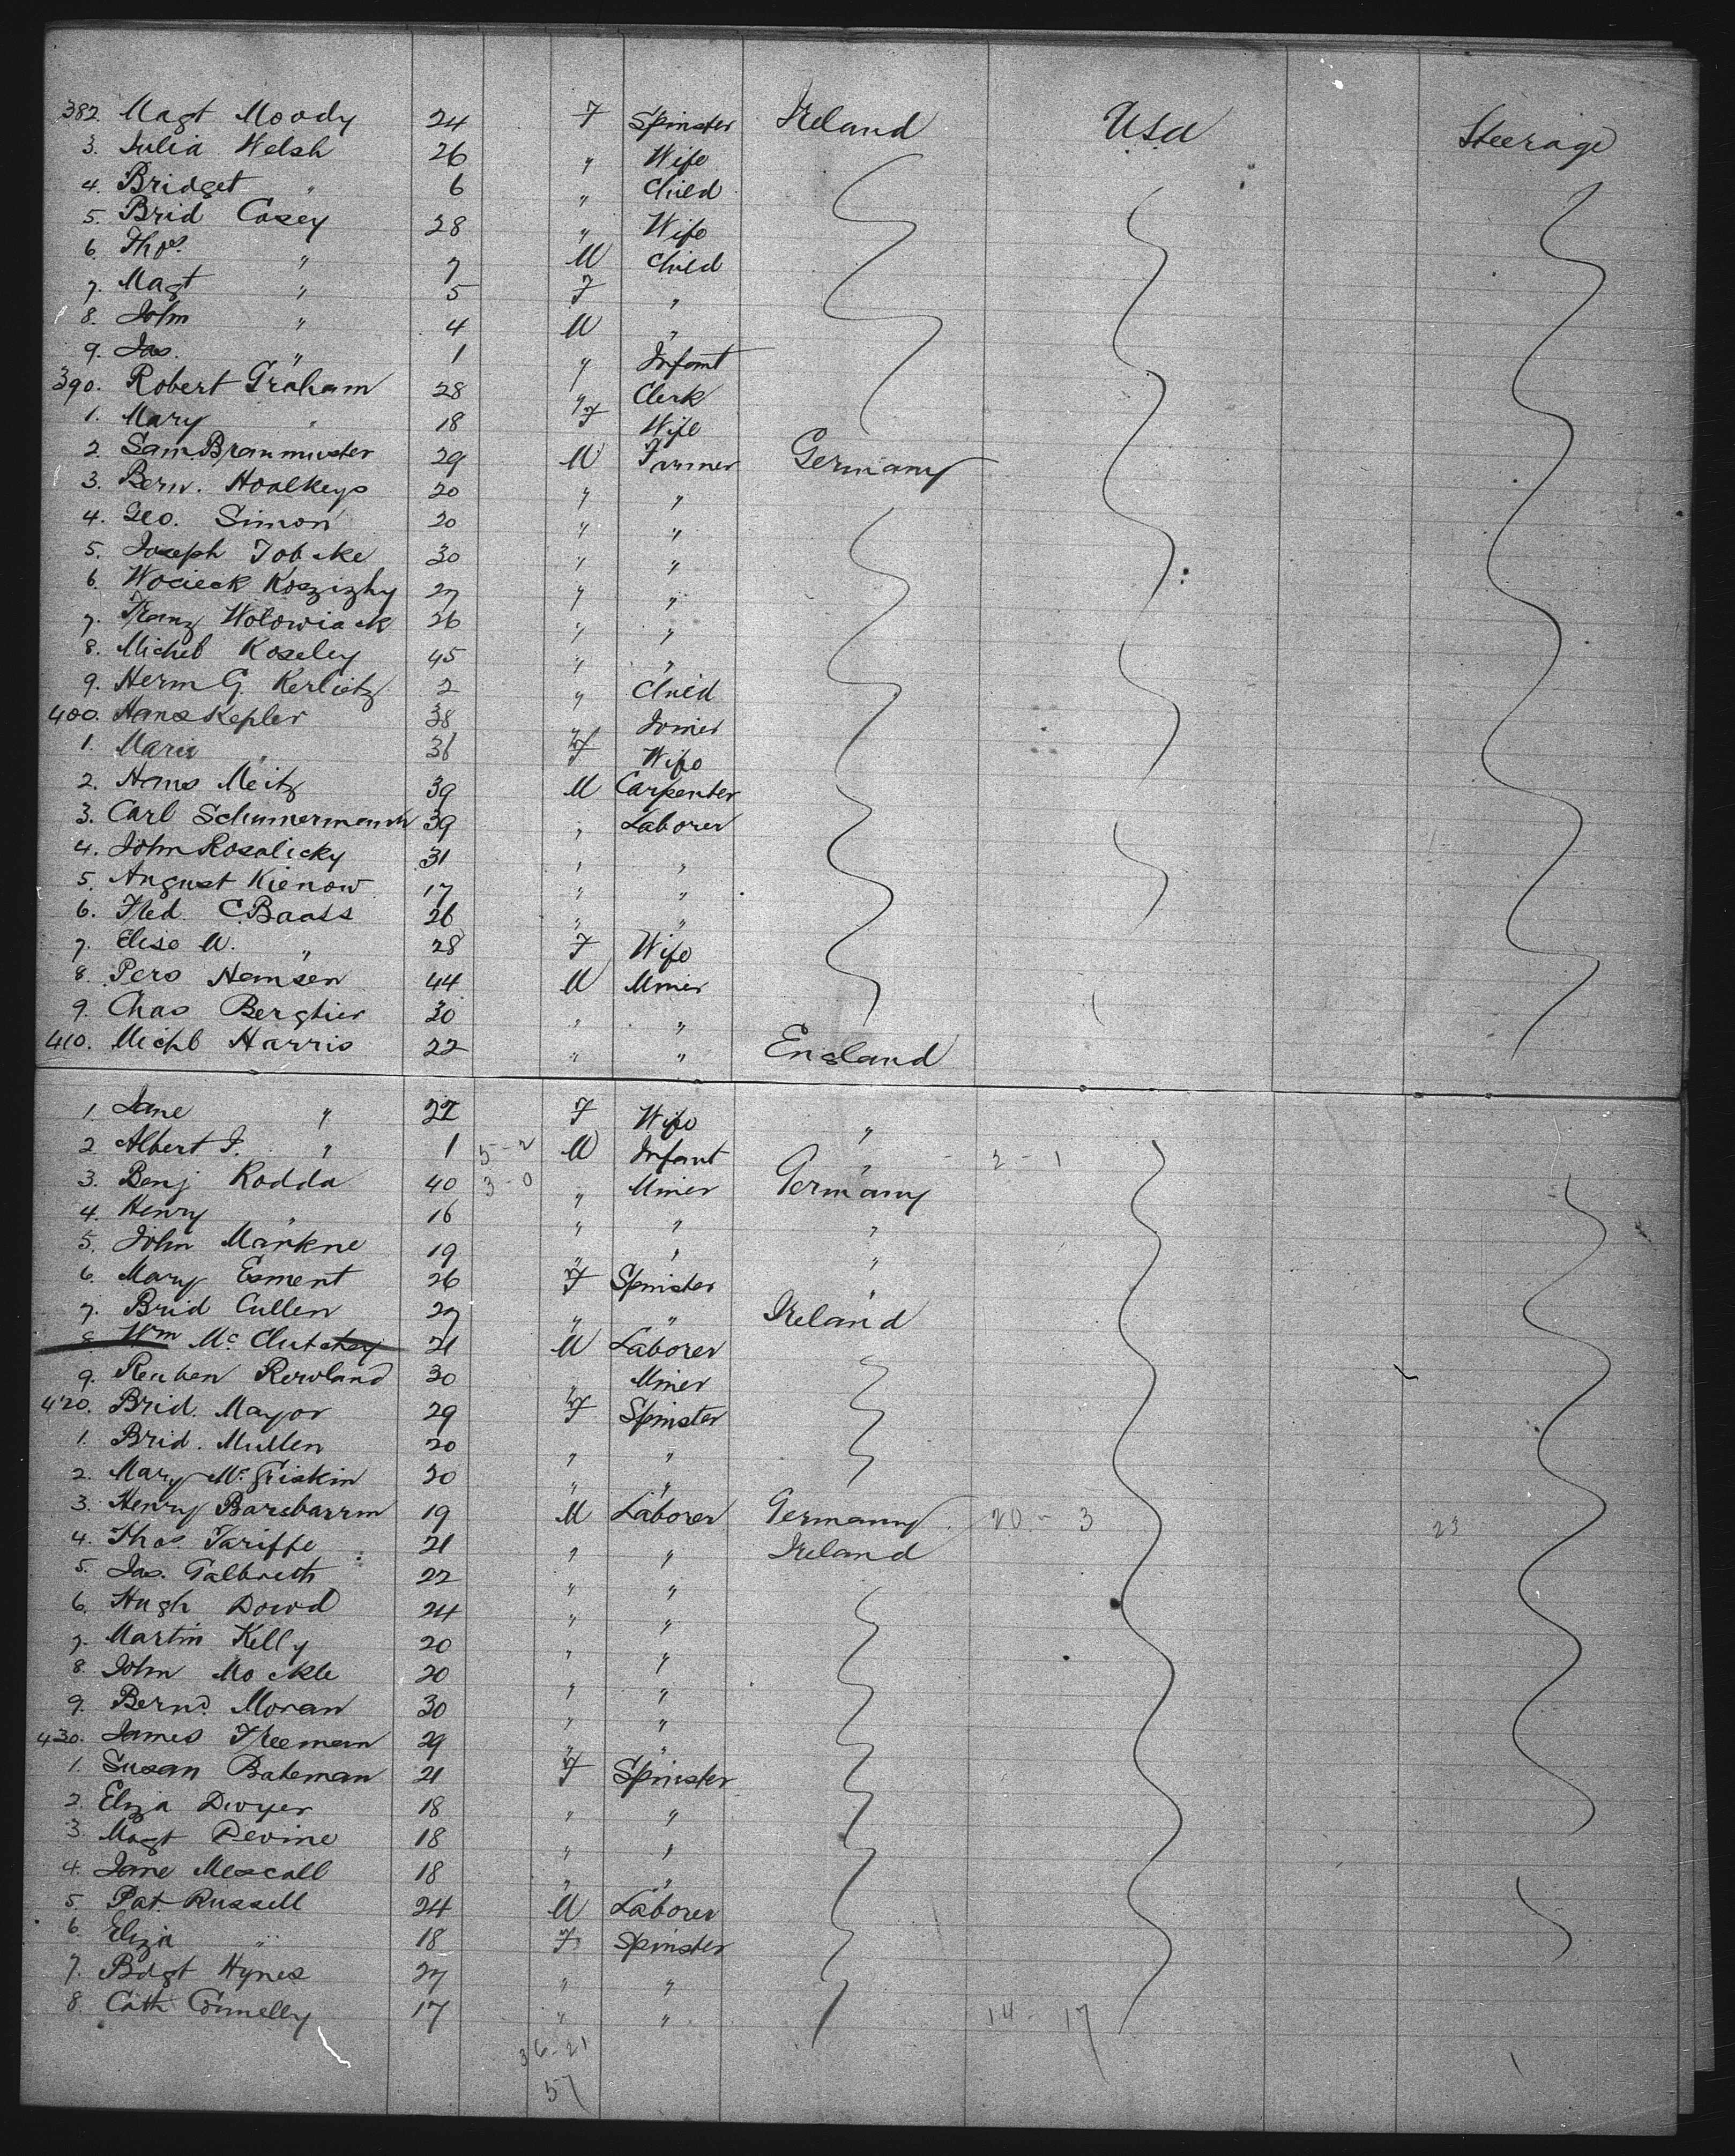 382. Magt Moody 24 F Spinster Ireland USA Steerage
3. Julia Welsh 26 " Wife
4. Bridget " 6 " Child
5. Brid Casey 28 " Wife
6. Thos. " 7 M Child
7. Magt " 5 F "
8. John " 4 M "
9. Jas. " 1 " Infant
390. Robert Graham 28 " Clerk
1. Mary " 18 F Wife
2. Sam. 29 M Farmer Germany
3. Bern. Hoalkeys 20 " "
4. Geo. Simon 20 " "
5. Joseph 30 " "
6. Wocieck Koszizhy 27 " "
7. Franz Wolowiack 26 " "
8. Michel Koseley 45 " "
9. Herm G. Kerlietz 2 " Child
400. Hans Kepler 38 " Joiner
1. Marie " 36 F Wife
2. Hans Meitz 39 M Carpenter
3. Carl Schunnermann 39 " Laborer
4. John Rosalicky 31 " "
5. August Kienow 17 " "
6. Fred. C. Baass 26 " "
7. Elise W. " 28 F Wife
8. Pero Hamsen 44 M Miner
9. Chas Bergtier 30 " "
410. Michl Harris 22 " " England
1. Jane " 22 F Wife "
2. Albert J. " 1 5-2 M Infant " 2-1
3. Benj Rodda 40 3-0 " Miner Germany
4. Henry " 16 " " "
5. John Markne 19 " " "
6. Mary Esment 26 F Spinster "
7. Brid Cullen 27 " " Ireland
8. Wm McClutchey 21 M Laborer
9. Reuben Rowland 30 " Miner
420. Brid. Mayor 29 F Spinster
1. Brid. Mullen 20 " "
2. Mary McGriskin 20 " "
3. Henry Barsbarrm 19 M Laborer Germany 20-3 23
4. Thos. Tariffe 21 " " Ireland
5. Jas. Galbreth 22 " "
6. Hugh Dowd 24 " "
7. Martin Kelly 20 " "
8. John Mockle 20 " "
9. Bernd. Moran 30 " "
430. James Freeman 29 " "
1. Susan Bateman 21 F Spinster
2. Eliza Dwyer 18 " "
3. Magt Devine 18 " "
4. Jane Mescall 18 " "
5. Pat. Russell 24 M Laborer
6. Eliza " 18 F Spinster
7. Bdgt Hynes 27 " "
8. Cath Connelly 17 " " 14-17
36-21
57